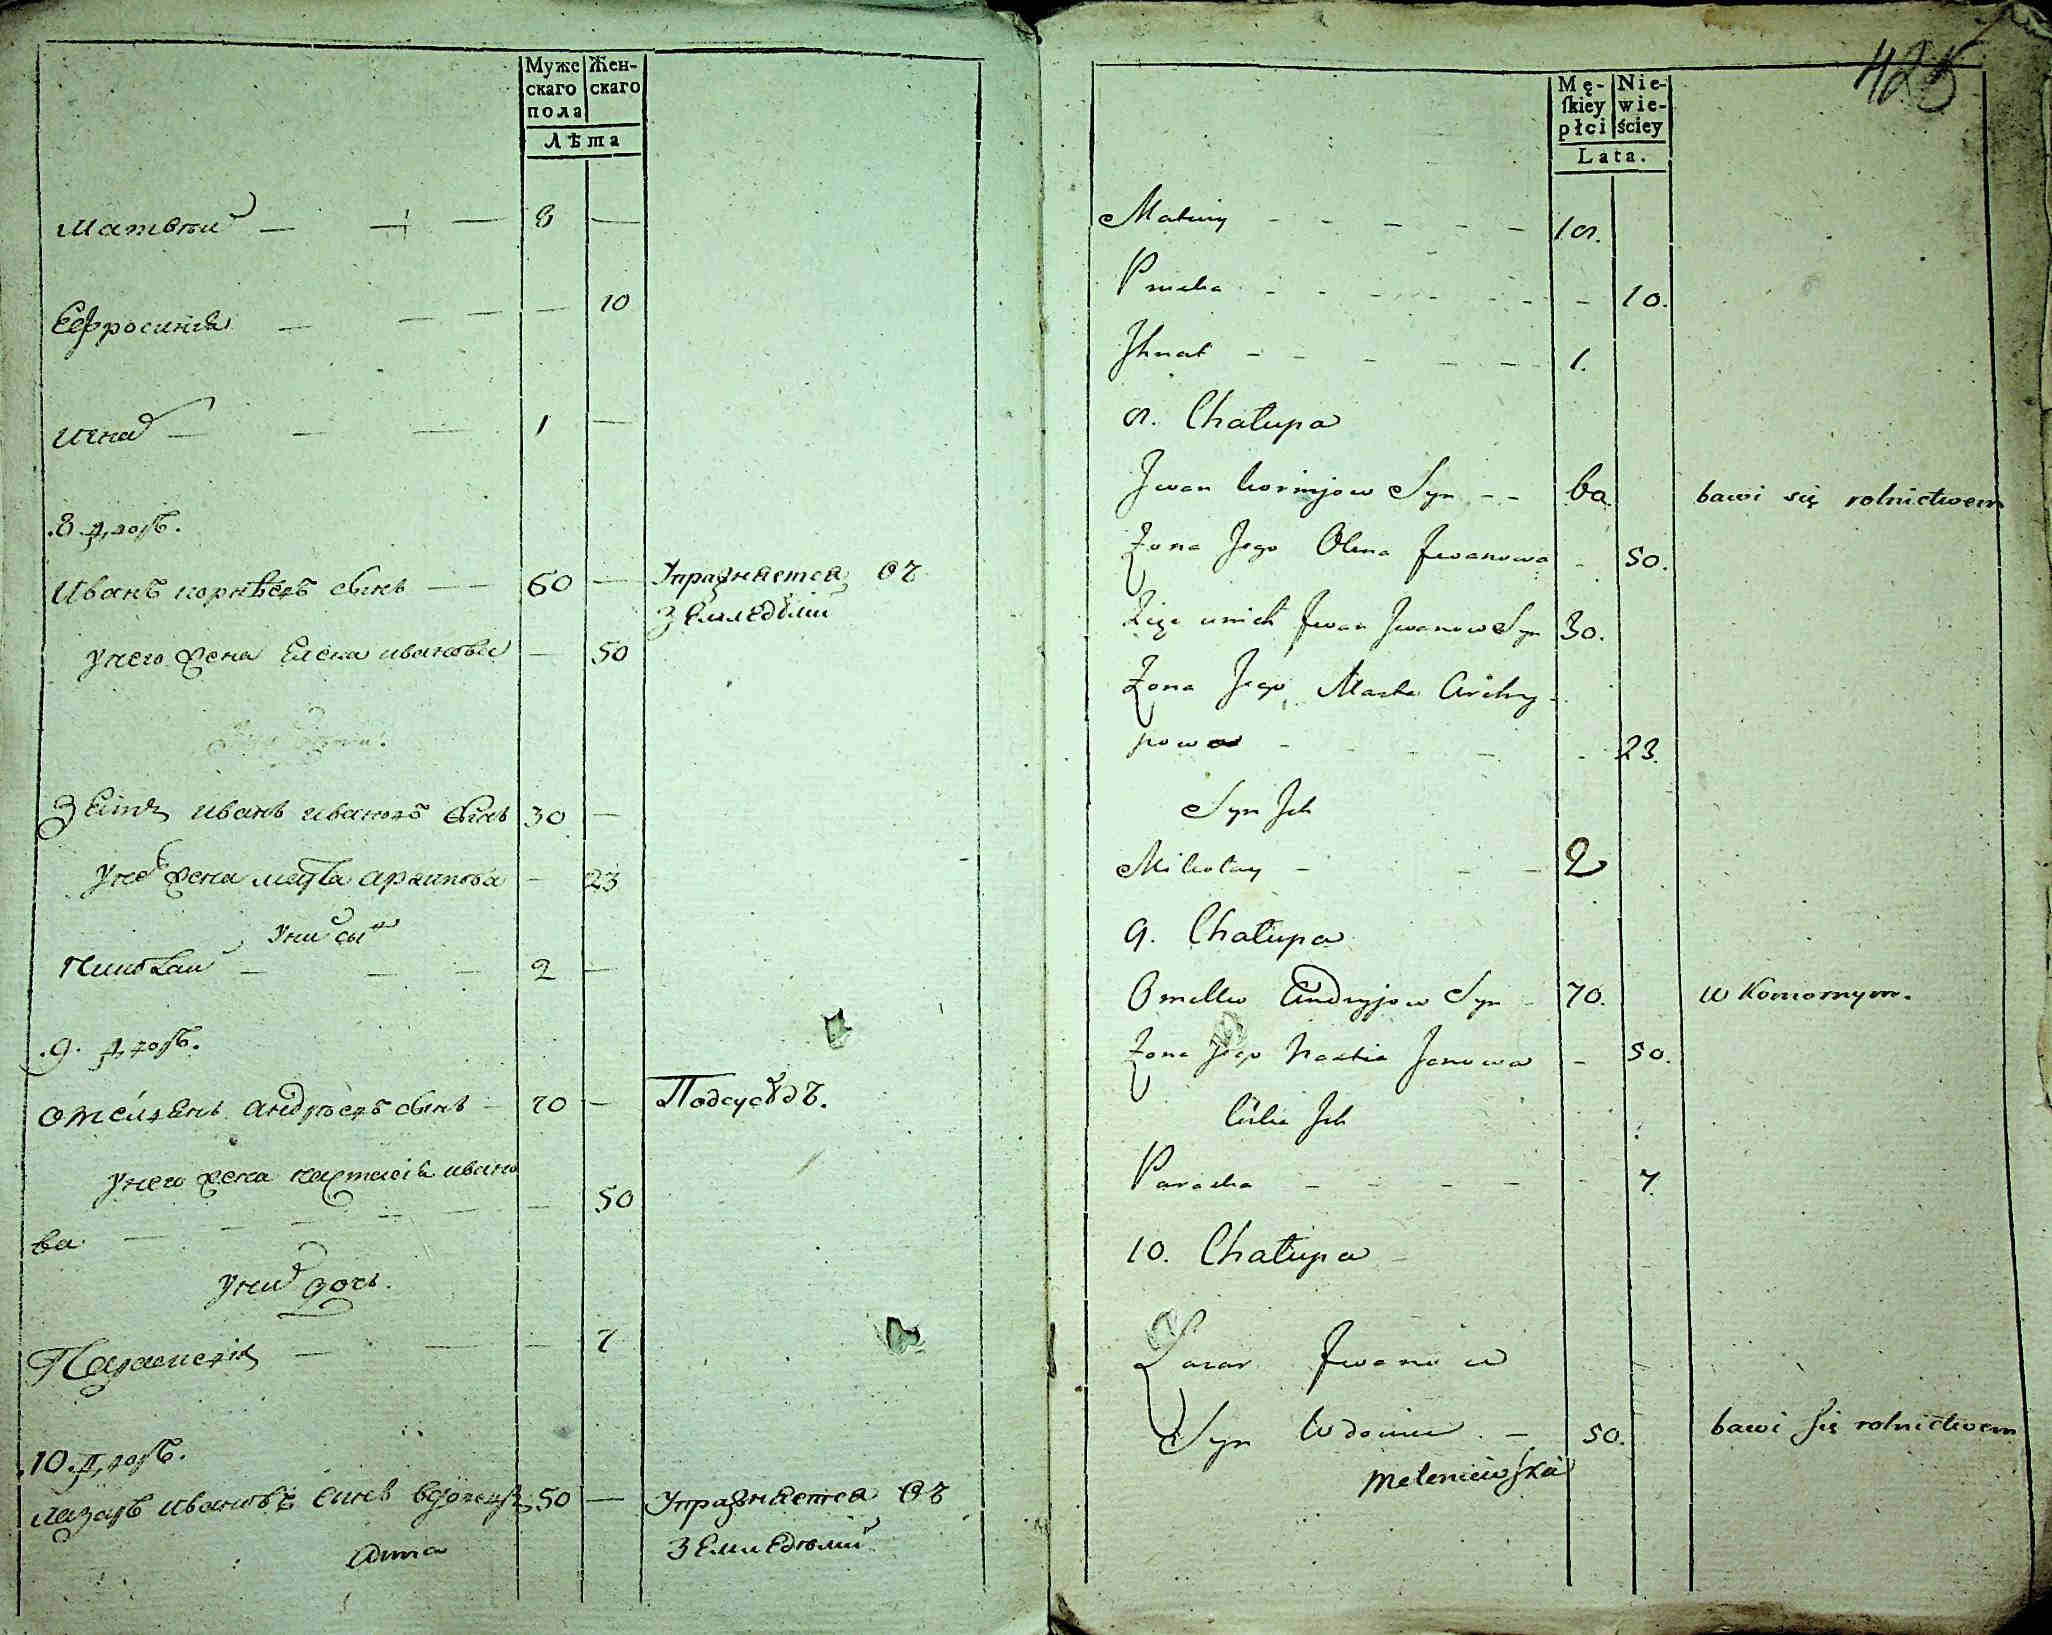 Муже Жен-
скаго скаго
пола
Лѣта
Матвѣй — — — 8 —
Ефросинія — — — — 10
Игнат — — — 1 —
.8. дворъ.
Иванъ корнѣевъ сынъ — 60 — Упражняется въ
земледѣлии
у него жена Елена иванова — 50
Зять иванъ ивановъ сынъ 30 —
у него жена марѳа архипова — 23
у них сын
Николай — — — 2 —
.9. дворъ.
Андрѣевъ сынъ — 70 — Подсусѣдъ.
у него жена настасія ивано
ва — — — — — 50
у них дочь.
Парасковія — — — 7
.10. дворъ.
лазарь ивановъ синъ 50 — Упражняется въ
земледѣлии
425
Mę- Nie-
ſkiey wie-
płci ściey
Lata.
Matwiy - - - - - 8.
- - - - - - 10.
Ihnat - - - - - 1.
8. Chałupa
Jwan Kornijow Syn - - 60 bawi się rolnictwem
Żona Jego Olena Jwanowa - 50.
Zięć u nich Jwan Jwanow Syn 30.
Żona Jego Marta Archy-
powa - - - - - 23.
Syn Ich
Mikołay - - - 2
9. Chałupa
Omelko Andryjow Syn - 70. w Komornym.
Żona Jego Nastia Janowa - 50.
Córka Ich
Paraska - - - - - 7
10. Chałupa
Łazar Jwanow
Syn Wdowiec - 50. bawi się rolnictwem